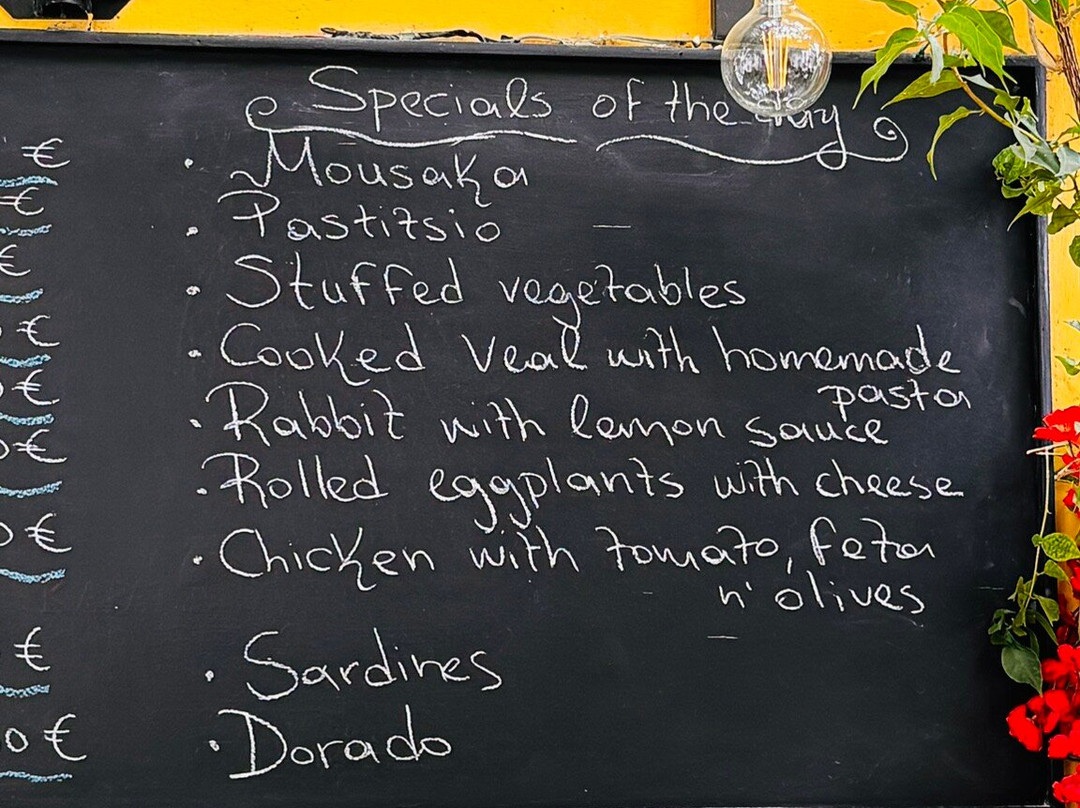 Specials of the day
€
• Mousaka
€
• Pastitsio
€
• Stuffed vegetables
€
• Cooked Veal with homemade
pasta
€
• Rabbit with lemon sauce
€
• Rolled eggplants with cheese
0€
• Chicken with tomato, feta
n' olives
€
• Sardines
0€
• Dorado